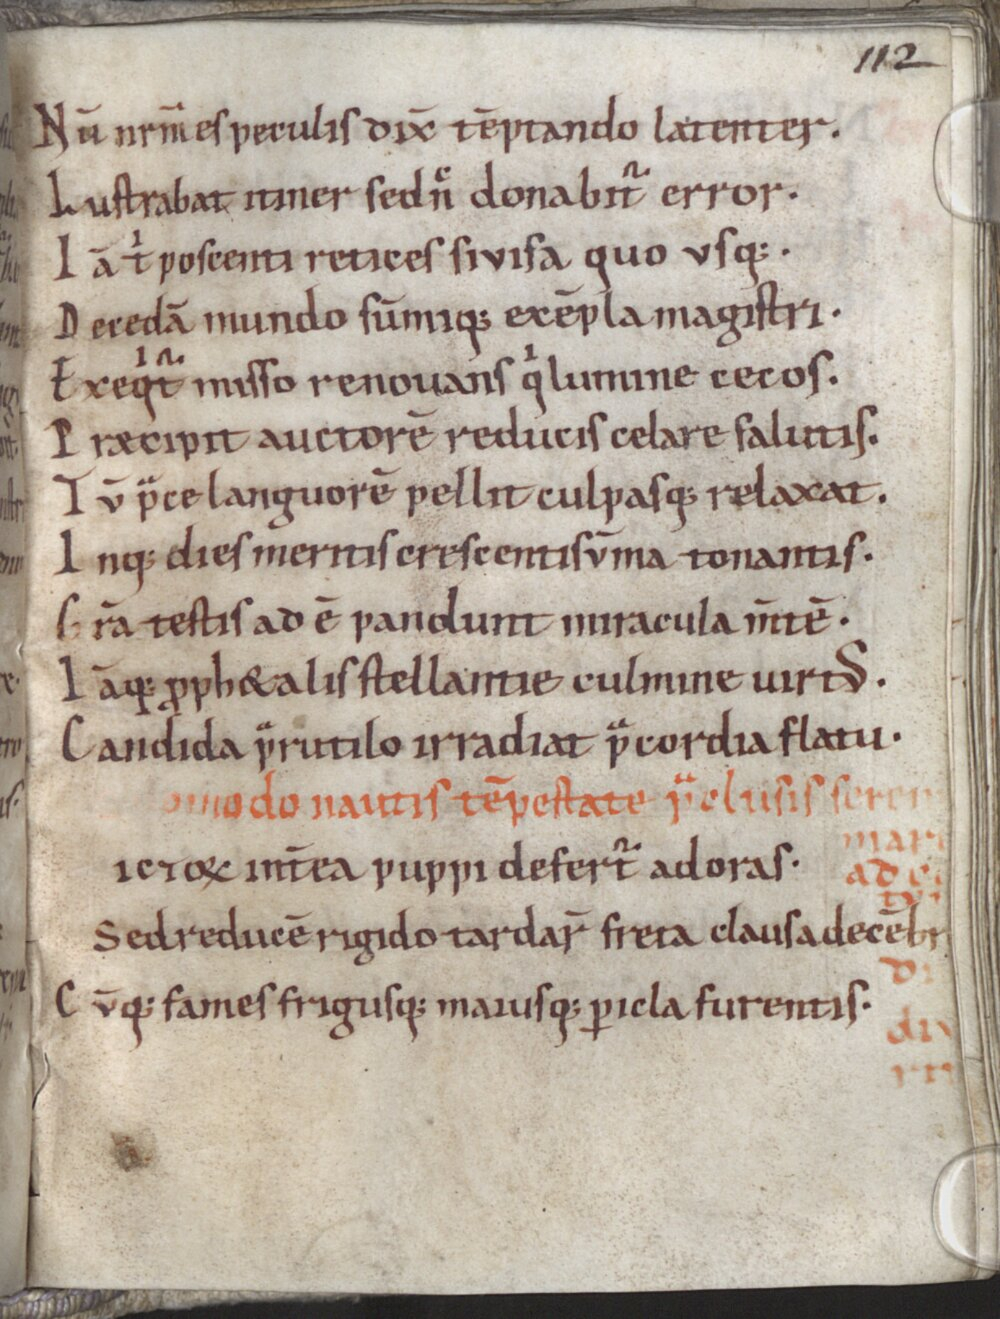 112
Nū nrm̄es peculis dix̄ tēptando latenter.
Lustrabat itiner sed n̄ donabit᷑ error.
Iā tͥ poscenti retices si visa quo vsq; .
Decedā mundo sūmiq; exēpla magistri.
Exeqͥt᷑ misso renouans qͥ lumine cecos.
Præcipit auctorē reducis celare salutis.
Tv̄ p̄ce languorē pellit culpasq; relaxat.
Inq; dies meritis crescentis v̄ma tonantis.
Gr̄a testis adē pandunt miracula m̄tē.
Iāq; ꝓph&alis stellantie culmine uirtꝰ.
Candida p̄rutilo irradiat p̄cordia flatu.
omodo nautis tēpestate p̄clusis seren
mari
ad c
icioꝝ int̄ea puppi defert᷑ ad oras.
Sed reducē rigido tardar̄ freta clausa decēbr
di
Cv̄q; fames frigusq; maiusq; ꝑicla furentis.
dix